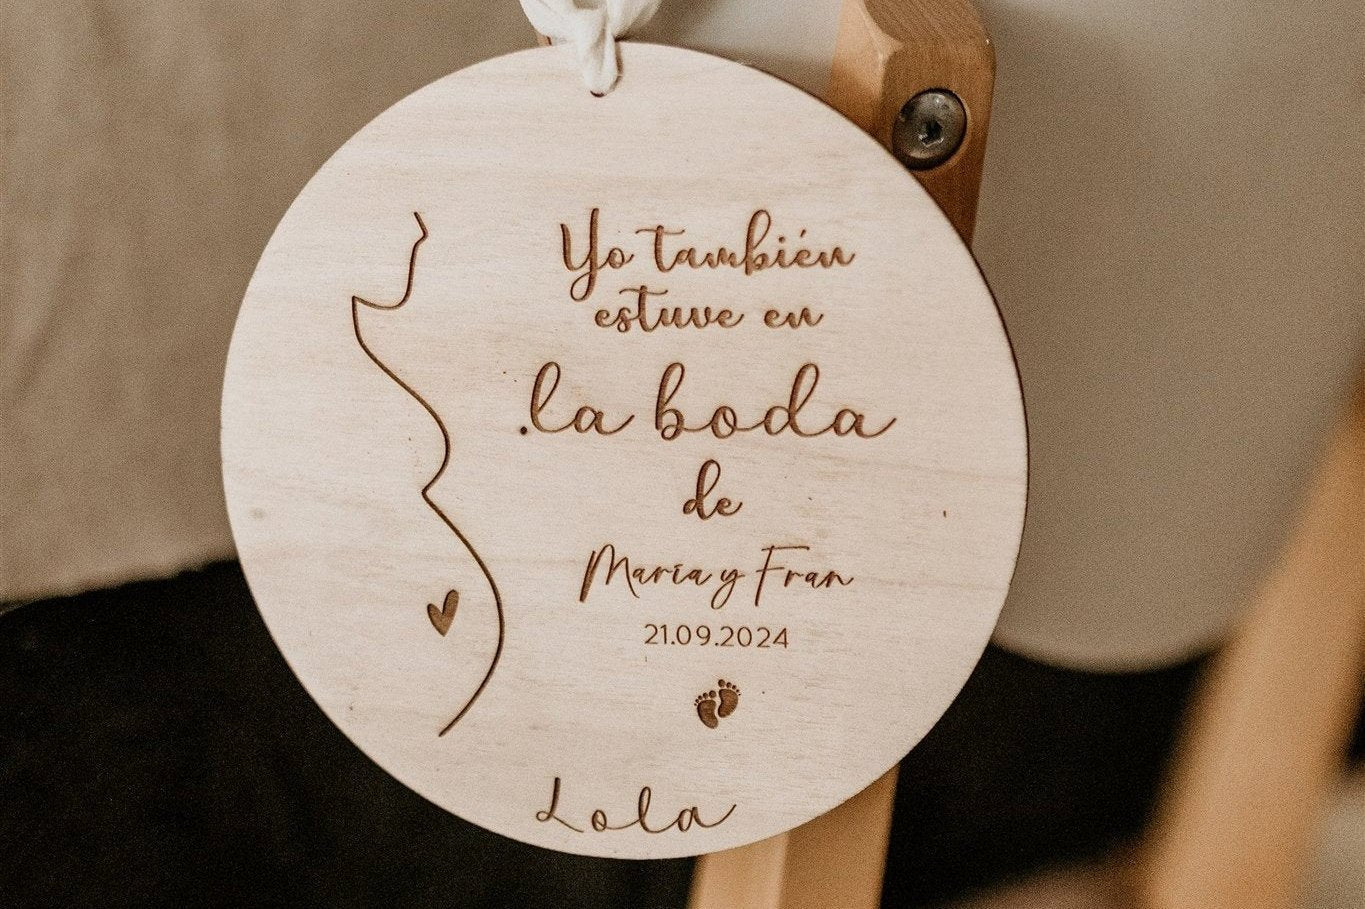 Yo también
estuve en
la boda
de
María y Fran
21.09.2024
Lola